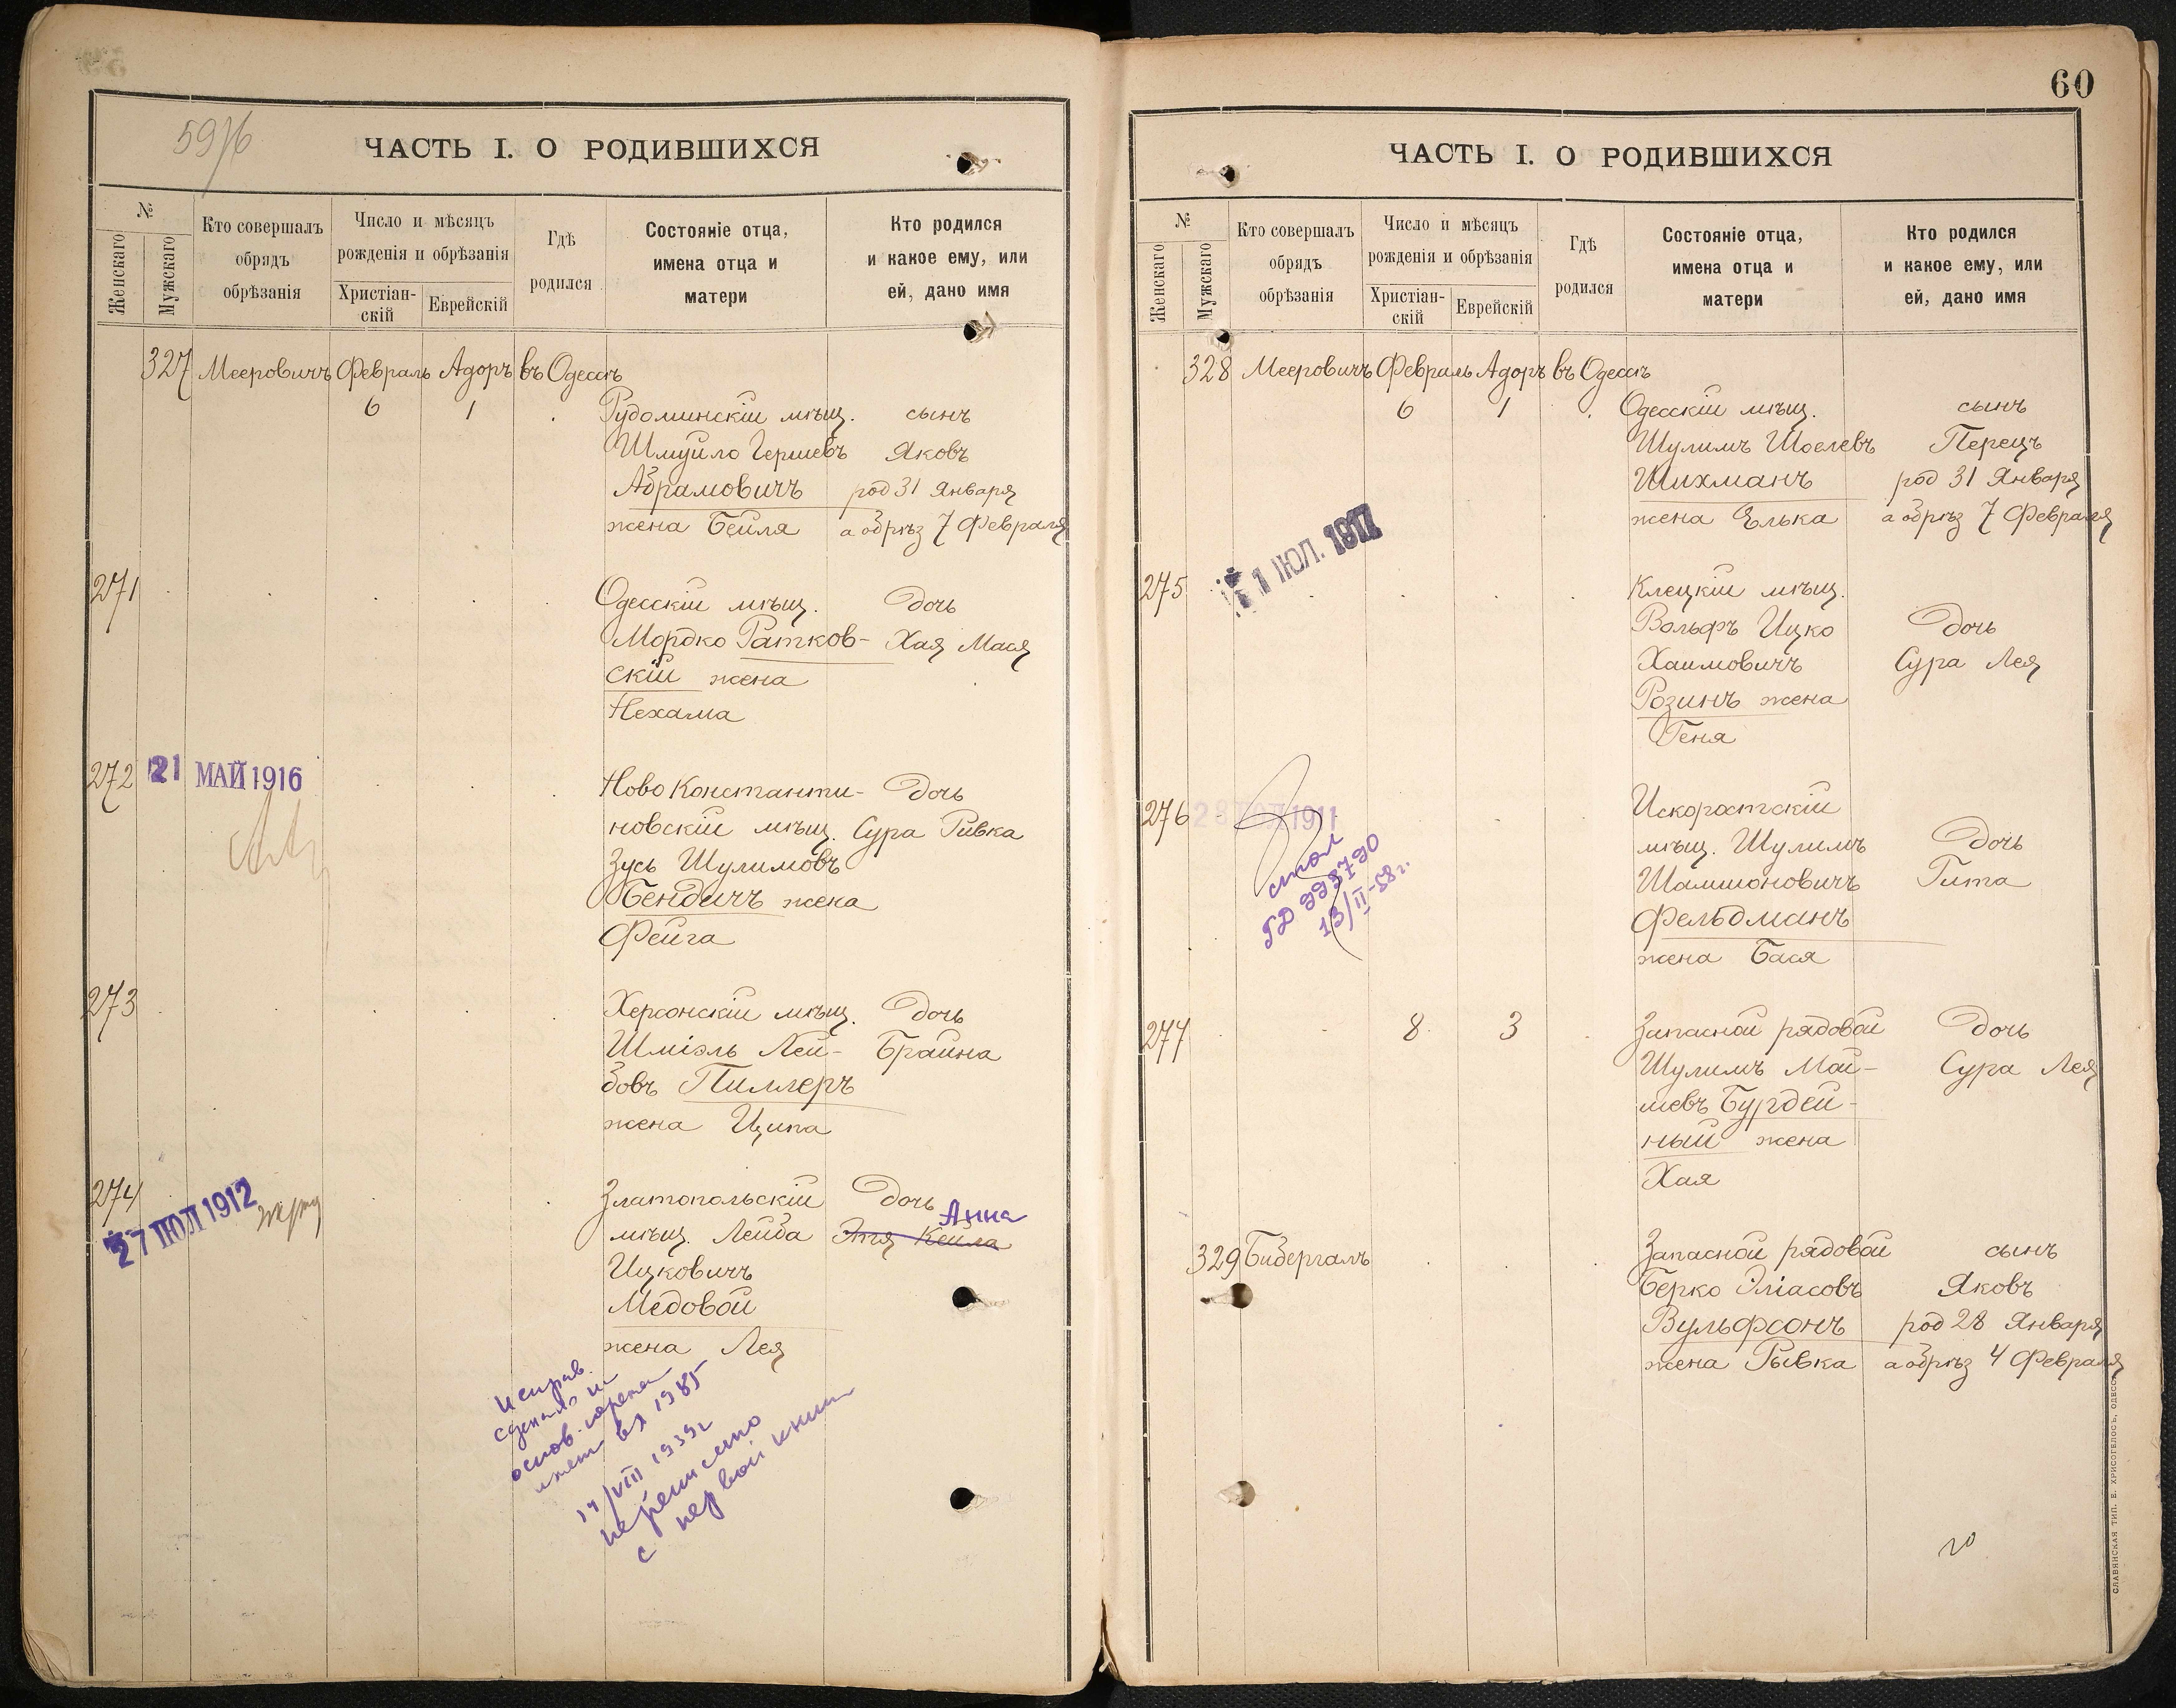 60
59776
ЧАСТЬ I. О РОДИВШИХСЯ
№
Женскаго
Мужскаго
Кто совершалъ
обрядъ
обрѣзанія
Число и мѣсяцъ
рожденія и обрѣзанія
Христіан-
скій
Еврейскій
Гдѣ
родился
Состояніе отца,
имена отца и
матери
Кто родился
и какое ему, или
ей, дано имя
327 Мееровичъ Февраль Адоръ въ Одессѣ
6 1 Рудоминскій мѣщ. сынъ
Шмуйло Гершевъ Яковъ
Абрамовичъ род 31 Января
жена Бейля а обрѣз 7 Февраля
271 Одесскій мѣщ. дочь
Мордко Ратков- Хая Мася
скій жена
Нехама
272 21 МАЙ 1916 Ново Константи- дочь
новскій мѣщ. Сура Ривка
Зусь Шулимовъ
Бендичъ жена
Фейга
273 Херсонскій мѣщ. дочь
Шміэль Лей- Брайна
бовъ Пиллеръ
жена Ципа
274 27 ІЮЛ 1912 Златопольскій дочь
Анна
мѣщ. Лейба Этя Кейла
Ицковичъ
Медовой
жена Лея
исправ.
основ.
вх 1985
14/VIII 1939г
перечислено
с первой книги
ЧАСТЬ I. О РОДИВШИХСЯ
№
Женскаго
Мужскаго
Кто совершалъ
обрядъ
обрѣзанія
Число и мѣсяцъ
рожденія и обрѣзанія
Христіан-
скій
Еврейскій
Гдѣ
родился
Состояніе отца,
имена отца и
матери
Кто родился
и какое ему, или
ей, дано имя
328 Мееровичъ Февраль Адоръ въ Одессѣ
6 1 Одесскій мѣщ. сынъ
Шулимъ Шоелевъ Перецъ
Шихманъ род 31 Января
жена Елька а обрѣз 7 Февраля
275 1 ІЮЛ. Клецкій мѣщ.
Вольфъ Ицко дочь
Хаимовичъ Сура Лея
Розинъ жена
Геня
276 28 ІЮЛ 1911 Искоростскій
мѣщ. Шулимъ дочь
Шамшоновичъ Гита
Фельдманъ
жена Бася
ГД 993790
13/II-58г.
277 8 3 Запасной рядовой дочь
Шулимъ Мой- Сура Лея
шевъ Бурдей-
ный жена
Хая
329 Бибергалъ Запасной рядовой сынъ
Берко Эліасовъ Яковъ
Вульфсонъ род 28 Января
жена Рывка а обрѣз 4 Февраля
СЛАВЯНСКАЯ ТИП. Е. ХРИСОГЕЛОСЪ, ОДЕССА